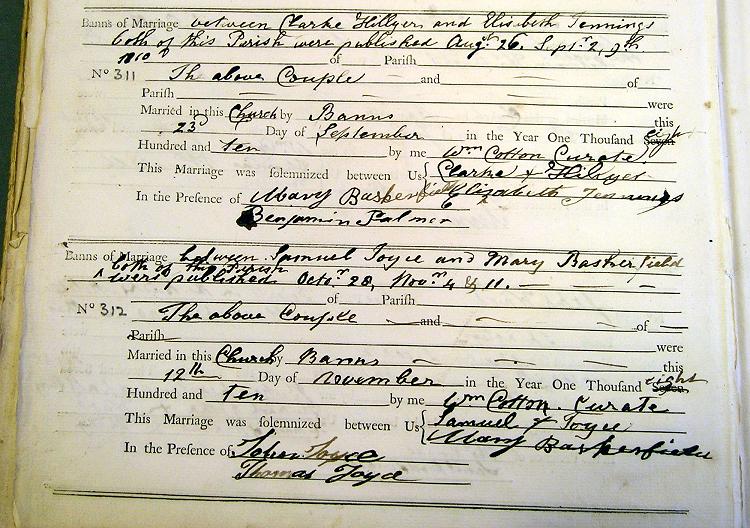 Banns of Marriage between Clarke Hillyer and Elisabeth Jennings
both of this Parish were published Augst 26. Septr 2, 9th
1810 of Parish
No 311 Th above Couple and of
Parish were
Married in this Church by Banns this
23d Day of September in the Year One Thousand Seven eight
Hundred and ten by me Wm Cotton Curate
This Marriage was solemnized between Us Clarke + Hillyer
In the Presence of Mary Baskerfield Elizabeth Jennings
Benjamin Palmer
Banns of Marriage between Samuel Joyce and Mary Baskerfield
both of this Parish
^ were published Octor 28, Novr 4 & 11.
of Parish
No 312 The above Couple and of
Parish were
Married in this Church by Banns this
12th Day of November in the Year One Thousand Seven eight
Hundred and ten by me Wm Cotton. Curate
This Marriage was solemnized between Us Samuel + Joyce
Mary Baskerfield
In the Presence of Joyce
Thomas Joyce